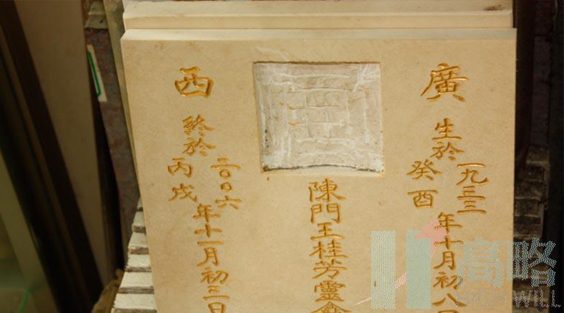 廣
生於
一九三三
癸酉
年十月初八日
陳門王桂芳靈
西
終於
二〇〇六
丙戌
年十一月初三日
高略
WILL